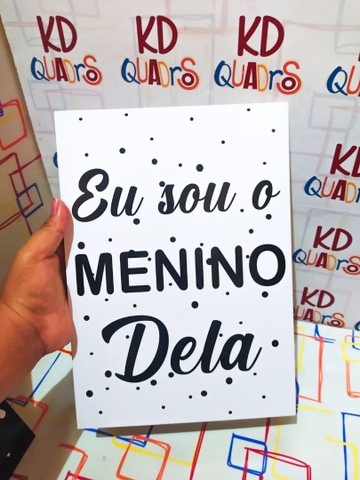 KD
QUADrS
KD
QUADrS
KD
QUADrS
KD
QUADrS
KD
QUADrS
KD
QUADrS
KD
QUADrS
Eu sou o
MENINO
Dela